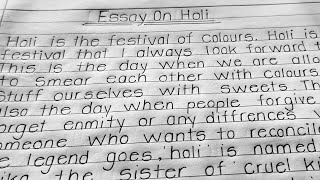 Essay On Holi
Holi is the festival of colours. Holi is
festival that I always look forward t
This is the day when we are allo
to smear each other with colours
stuff ourselves with sweets. Th
also the day when people forgive
orget enmity or any diffrences w
omeone who wants to reconcile
e legend goes, 'holi' is named
the sister of cruel ki